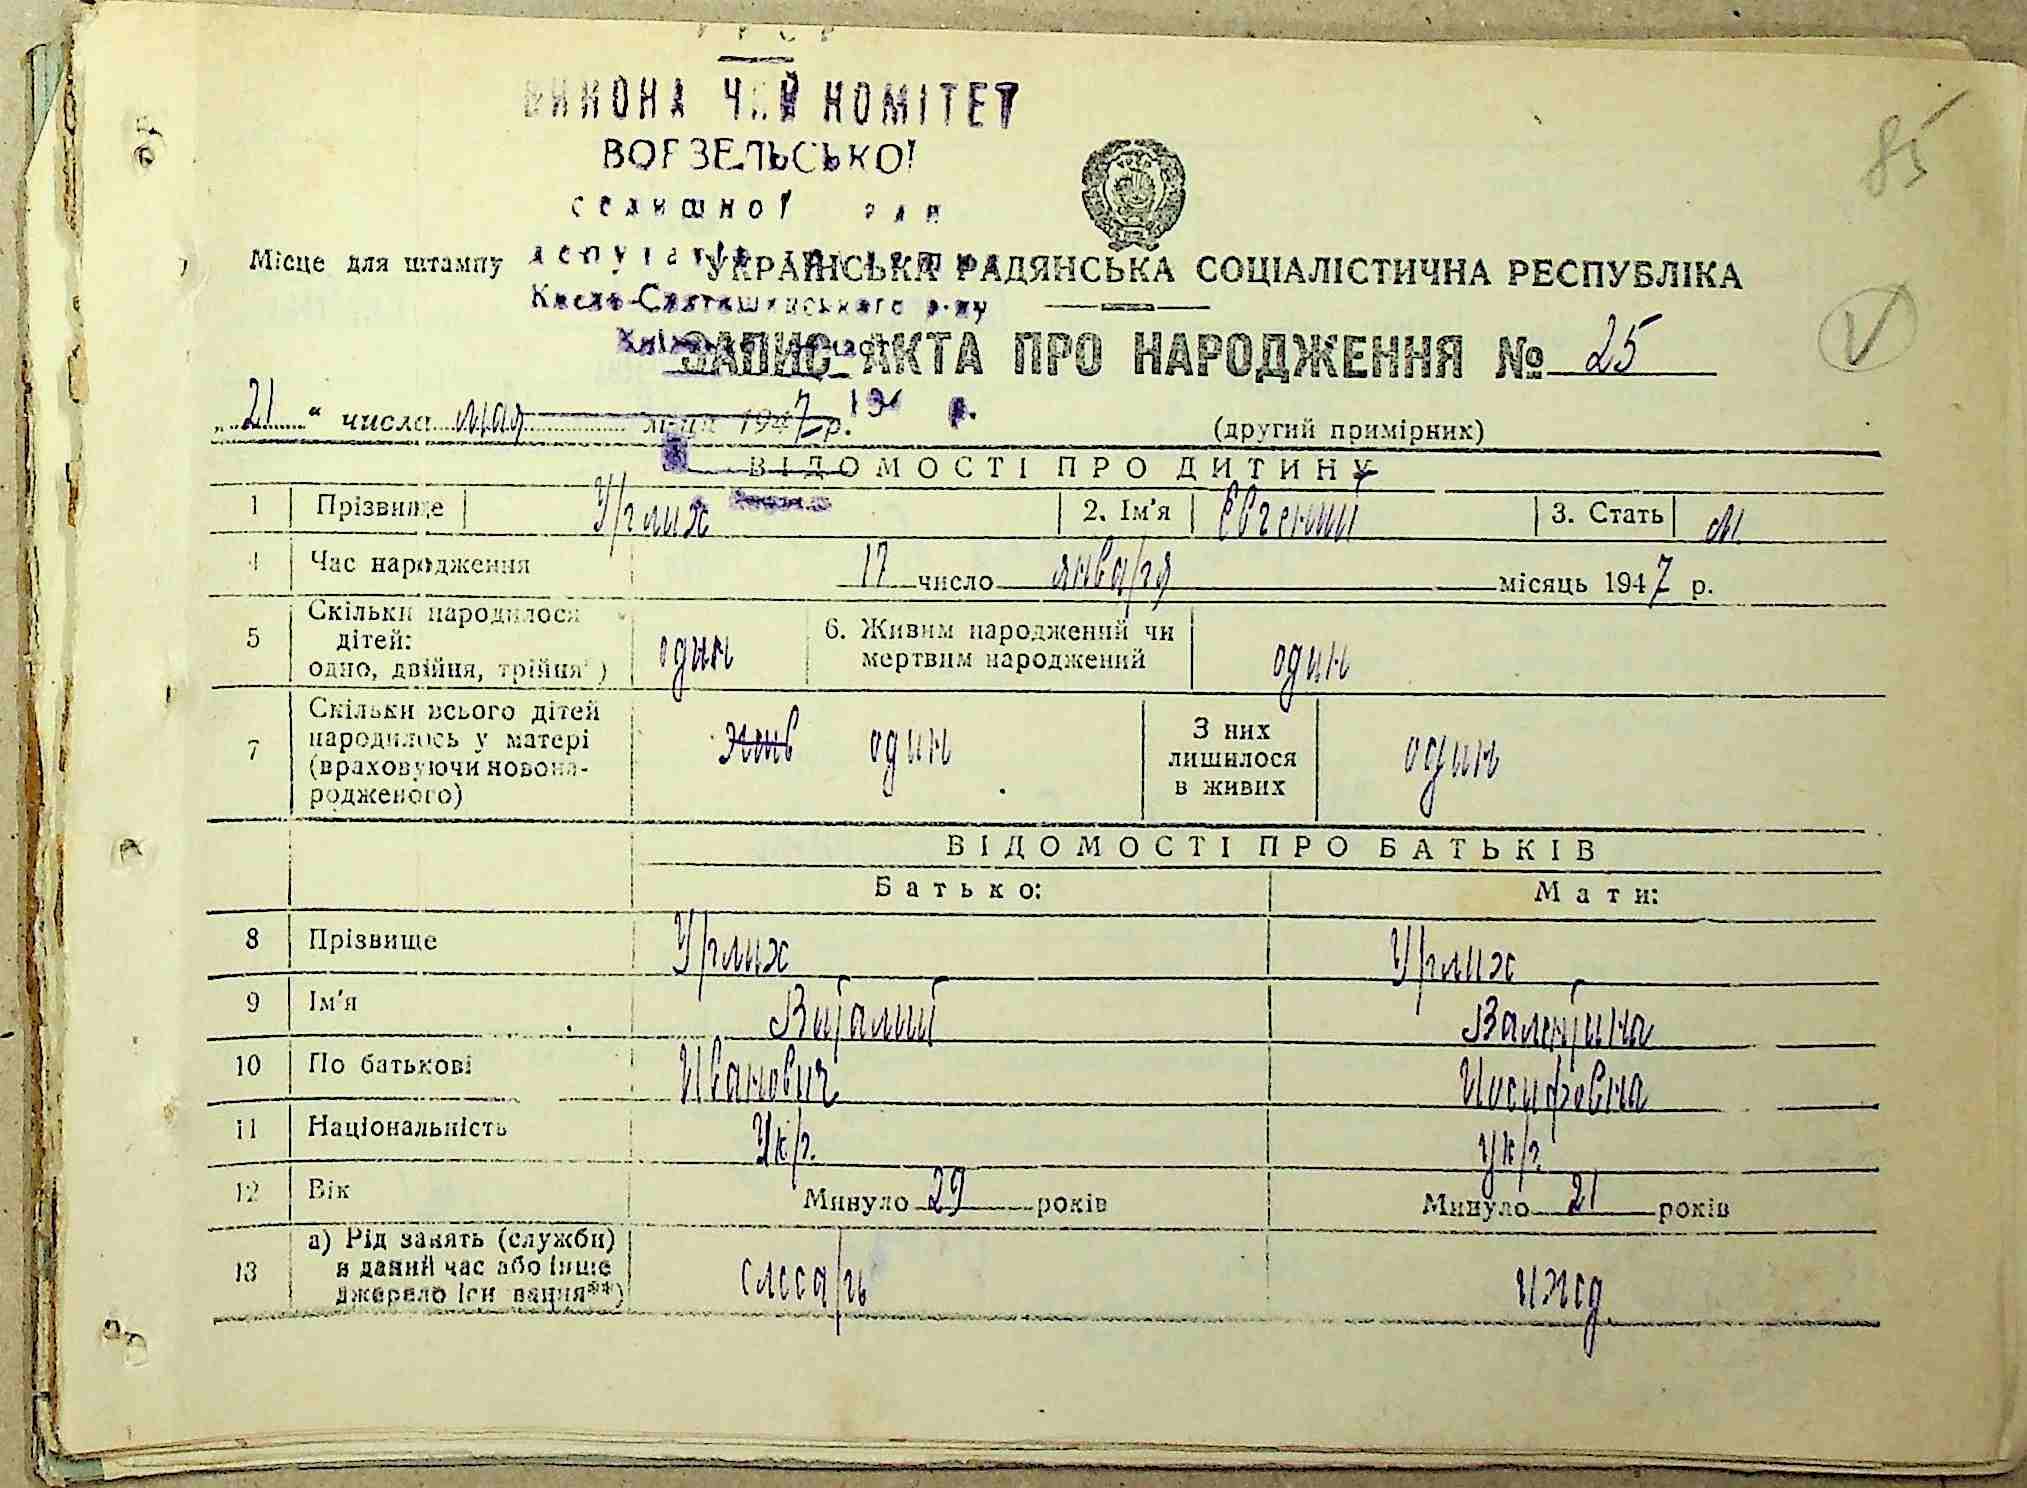 85
ВИКОНАЧИЙ КОМІТЕТ
ВОРЗЕЛЬСЬКОЇ
селищної ради
депутатів
Місце для штампу
УКРАЇНСЬКА РАДЯНСЬКА СОЦІАЛІСТИЧНА РЕСПУБЛІКА
Києво-Святошинського р-ну
ЗАПИС АКТА ПРО НАРОДЖЕННЯ № 25
„21“ числа мая м-ця 1947 р. 19 р.
(другий примірник)
ВІДОМОСТІ ПРО ДИТИНУ
1 Прізвище Урлих 2. Ім'я Евгений 3. Стать М
4 Час народження 17 число января місяць 1947 р.
5 Скільки народилося дітей: одно, двійня, трійня*) один 6. Живим народжений чи мертвим народжений один
7 Скільки всього дітей народилось у матері (враховуючи новонародженого) один З них лишилося в живих один
ВІДОМОСТІ ПРО БАТЬКІВ
Батько: Мати:
8 Прізвище Урлих Урлих
9 Ім'я Виталий Валентина
10 По батькові Иванович Иосифовна
11 Національність Укр. укр.
12 Вік Минуло 29 років Минуло 21 років
13 а) Рід занять (служби) в даний час або інше джерело існування**) слесарь ижд.